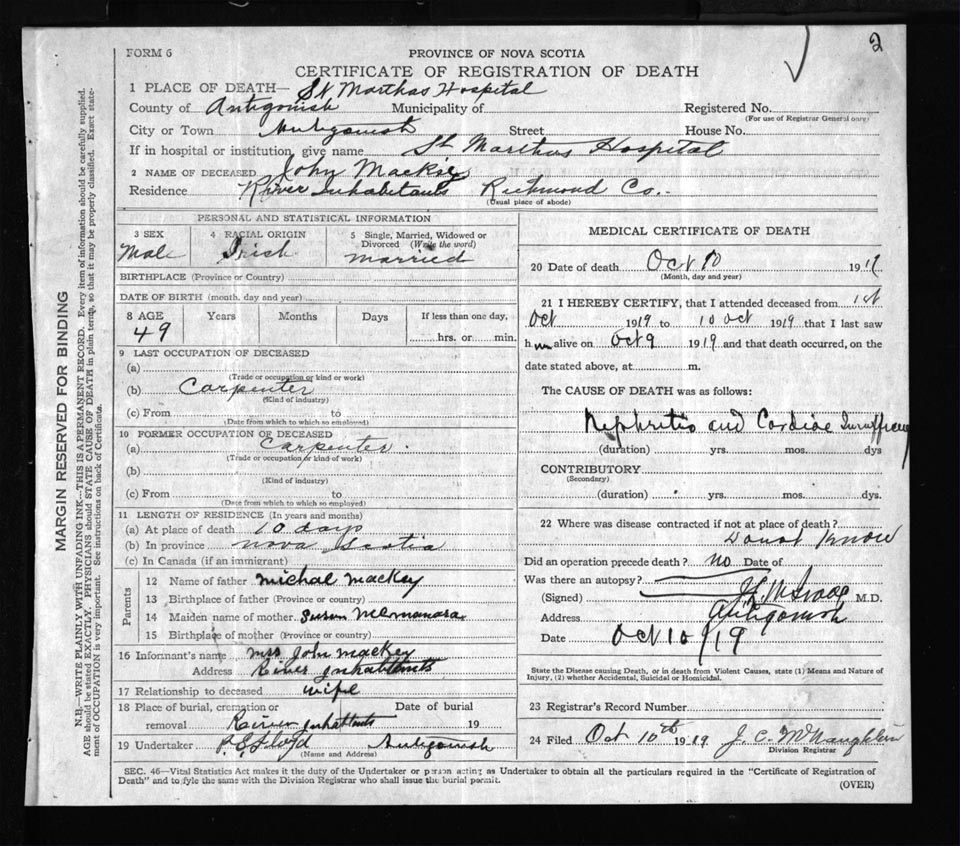 2
FORM 6
PROVINCE OF NOVA SCOTIA
CERTIFICATE OF REGISTRATION OF DEATH
1 PLACE OF DEATH— St Marthas Hospital
County of Antigonish Municipality of Registered No.
(For use of Registrar General only)
City or Town Antigonish Street House No.
If in hospital or institution, give name St Marthas Hospital
2 NAME OF DECEASED John Mackie
Residence River Inhabitants Richmond Co.
(Usual place of abode)
PERSONAL AND STATISTICAL INFORMATION
3 SEX 4 RACIAL ORIGIN 5 Single, Married, Widowed or Divorced (Write the word)
Male Irish married
BIRTHPLACE (Province or Country)
DATE OF BIRTH (month, day and year)
8 AGE Years Months Days If less than one day,
49 hrs. or min.
9 LAST OCCUPATION OF DECEASED
(a)
(Trade or occupation or kind or work)
(b) Carpenter
(Kind of industry)
(c) From to
(Date from which to which so employed)
10 FORMER OCCUPATION OF DECEASED
(a) Carpenter
(Trade or occupation or kind of work)
(b)
(Kind of industry)
(c) From to
(Date from which to which so employed)
11 LENGTH OF RESIDENCE (In years and months)
(a) At place of death 10 days
(b) In province nova scotia
(c) In Canada (if an immigrant)
Parents
12 Name of father michal mackey
13 Birthplace of father (Province or country)
14 Maiden name of mother Susan
15 Birthplace of mother (Province or country)
16 Informant's name mrs John mackey
Address River Inhabitants
17 Relationship to deceased wife
18 Place of burial, cremation or Date of burial
removal River Inhabitants 19
19 Undertaker Antigonish
(Name and Address)
MEDICAL CERTIFICATE OF DEATH
20 Date of death Oct 10 1919
(Month, day and year)
21 I HEREBY CERTIFY, that I attended deceased from 1st
Oct 1919 to 10 oct 1919 that I last saw
him alive on Oct 9 1919 and that death occurred, on the
date stated above, at m.
The CAUSE OF DEATH was as follows:
Nephritis and Cardiac Insufficiency
(duration) yrs. mos. dys
CONTRIBUTORY
(Secondary)
(duration) yrs. mos. dys.
22 Where was disease contracted if not at place of death?
Donot Know
Did an operation precede death? no Date of
Was there an autopsy?
(Signed) M.D.
Address Antigonish
Date Oct 10/19
State the Disease causing Death, or in death from Violent Causes, state (1) Means and Nature of
Injury, (2) whether Accidental, Suicidal or Homicidal.
23 Registrar's Record Number
24 Filed Oct 10th 1919 J. C. McNaughton
Division Registrar
SEC. 46—Vital Statistics Act makes it the duty of the Undertaker or person acting as Undertaker to obtain all the particulars required in the "Certificate of Registration of
Death" and to fyle the same with the Division Registrar who shall issue the burial permit.
(OVER)
MARGIN RESERVED FOR BINDING
N.B.—WRITE PLAINLY WITH UNFADING INK—THIS IS A PERMANENT RECORD. Every item of information should be carefully supplied.
AGE should be stated EXACTLY. PHYSICIANS should STATE CAUSE OF DEATH in plain terms, so that it may be properly classified. Exact state-
ment of OCCUPATION is very important. See instructions on back of Certificate.